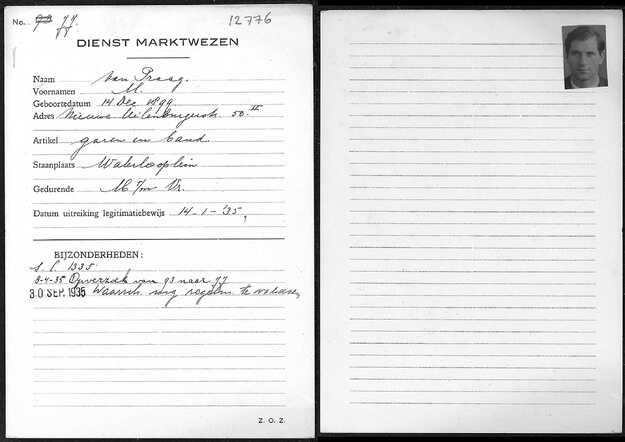 No. 93 77. 12776
77
DIENST MARKTWEZEN
Naam van Praag.
Voornamen M.
Geboortedatum 14 Dec 1899
Adres Nieuwe Uilenburgerstr. 50 II
Artikel garen en band
Staanplaats Waterlooplein
Gedurende M t/m Vr.
Datum uitreiking legitimatiebewijs 14-1-'35,
BIJZONDERHEDEN:
1335
3-4-35 Op verzoek van 93 naar 77
30 SEP. 1935 Waarsch. nog regelm. te
Z. O. Z.